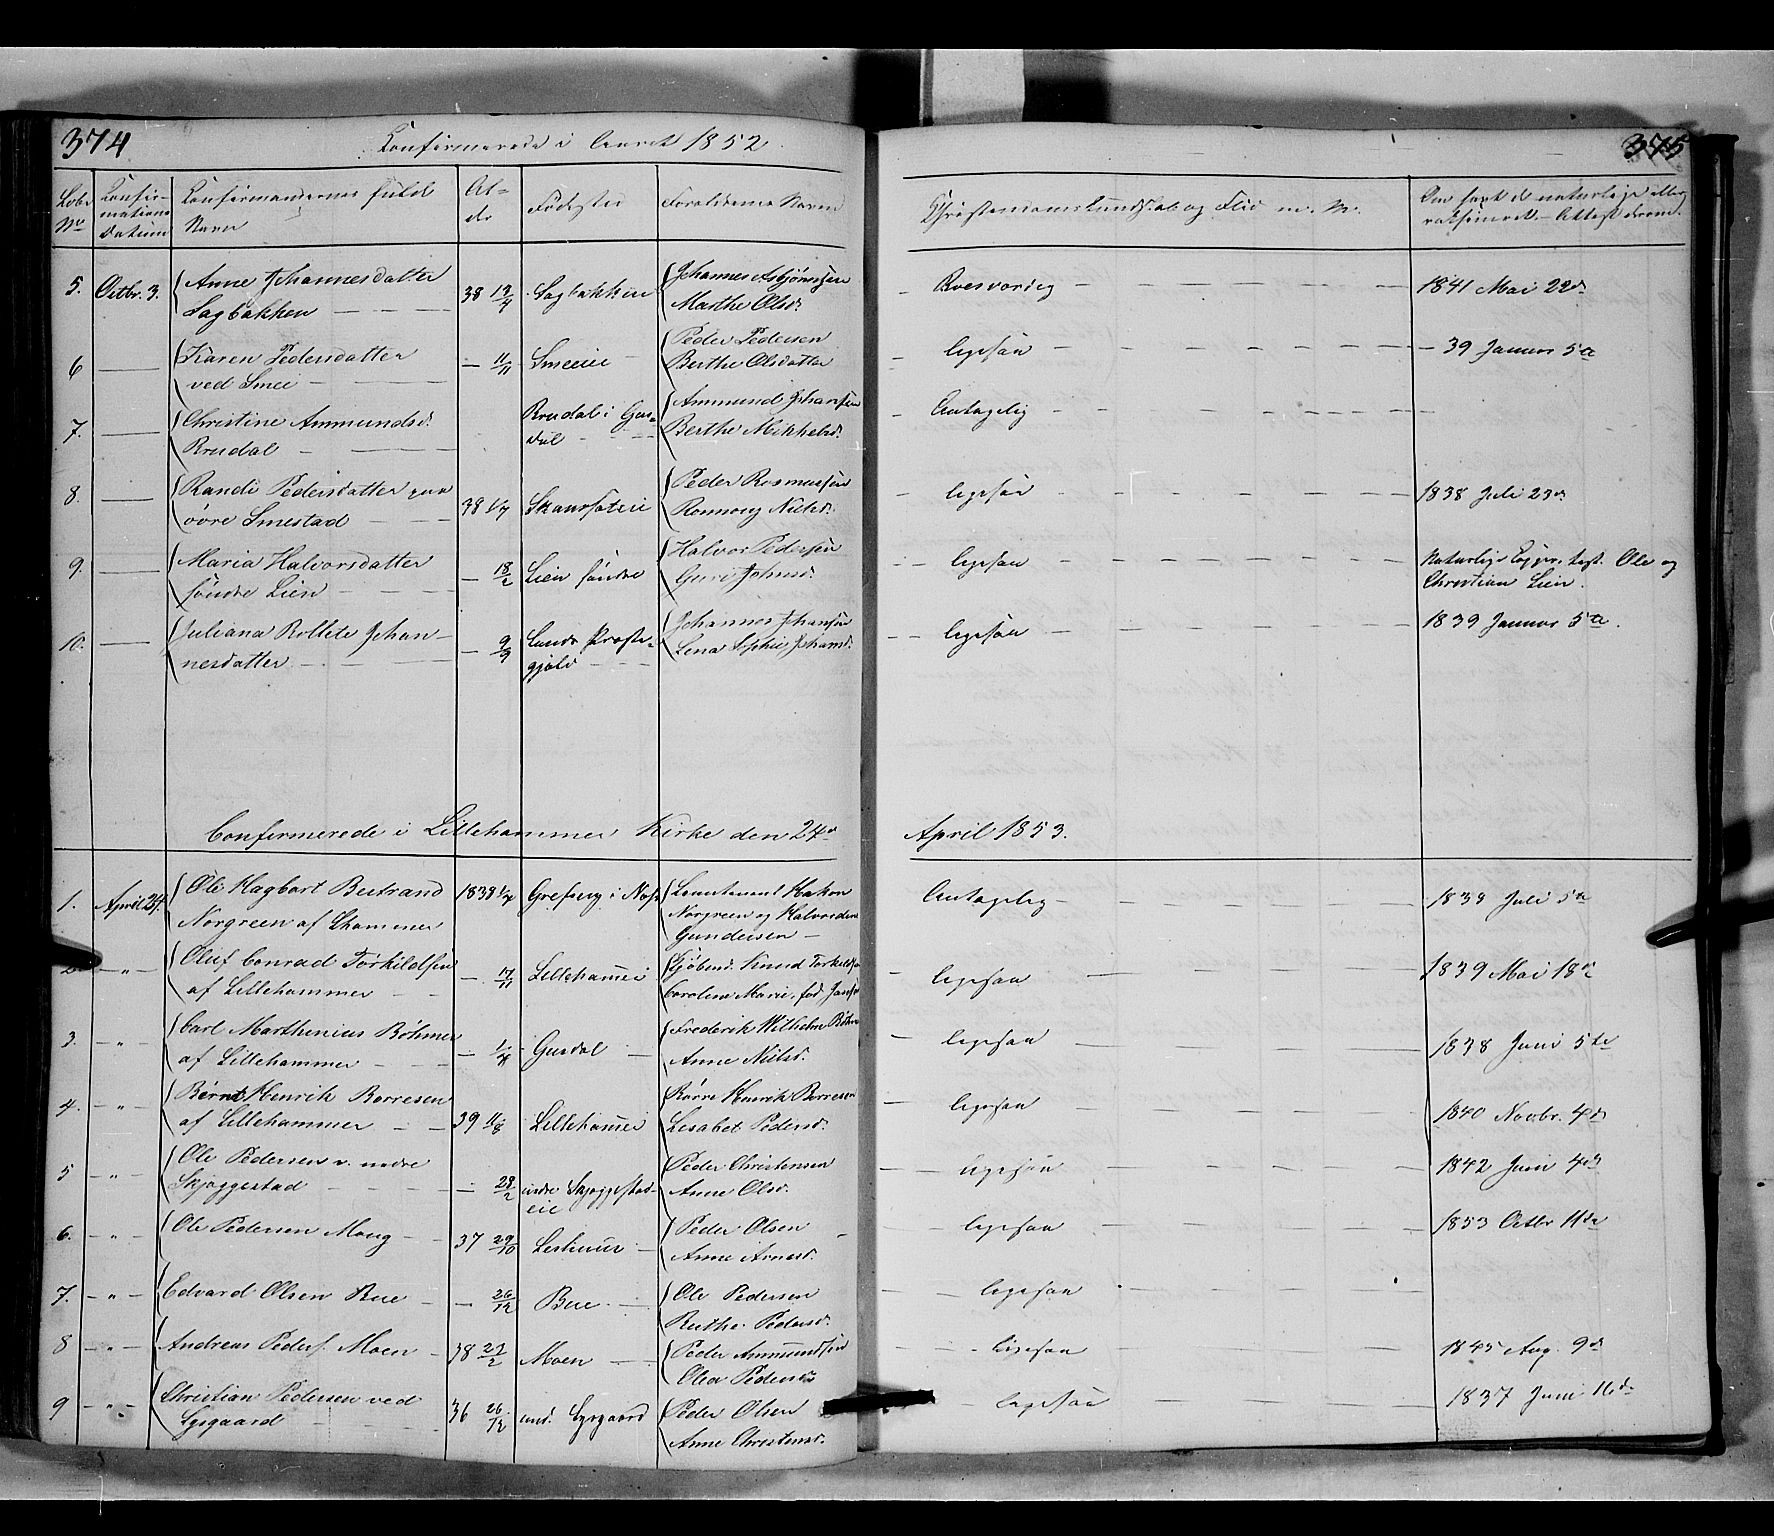 374
Confirmerede i Aaret 1852
375
Løbe No
Confirmations Datum
Confirmandernes fulde Navn
Alder
Fødested
Forældrenes Navne
Christendoms Kundskab og Flid m. M.
Om havt de naturlige eller
vaksineret. - Attest derom.
5. Octbr. 3. Anne Johannesdatter Johannes Asbjørnsen
38 Sagbakken Roesværdig 1841 Mai 22d
Sagbakken Marthe Olsd.
Karen Pedersdatter Peder Pedersen
6 11/11 Smeeiie ligesaa 39 Januar 5te
ved Smee Berthe Olsdatter
Christine Ammundsd. Rrudal i Gus- Ammund Johansen
7. dal Antagelig
Rrudal Berthe Mikkelsd.
8. Randi Pedersdatter paa Peder Rasmussen ligesaa 1838 Juli 23d
øvre Smestad 38 1/7 Ronnoug Nielsd.
9. Maria Halvorsdatter Halvor Pedersen ligesaa Naturlige Kopper, test. Ole og
søndre Lien 18/2 Lien søndre Guri Johnsd. Christian Lien.
10. Juliana Rollete Johan- 9/9 Lands Præste- Johannes Johansen ligesaa 1839 Januar 5te.
nesdatter gjæld Lena Sophie Johansd.
Confirmerede i Lillehammer Kirke den 24d April 1853.
1. April 24. Ole Hagbart Bertrand 1838 Lieutenant Hakon Antagelig 1839 Juli 5te
Norgreen af Lhammer Norgreen og
Gundersen
2 Oluf Conrad Torkildsen 17/11 Lillehamer Kjøbmd. Knud Torkilds ligesaa 1839 Mai 18de
af Lillehammer Caroline Marie, fød
3. Carl Marthinius Böhmer Gusdal Frederik Wilhelm Böhm ligesaa 1838 Juni 5te
af Lillehammer Anne Nielsd.
4. Bernt Henrik Borresen Børre Henrik Borresen ligesaa
af Lillehammer 39 11/8 Lillehamer Lisabet Pedersd. 1840 Novbr. 4de
5 Ole Pedersen v. nedre Peder Christensen ligesaa 1842 Juni 4de
Skjøggestad 28/2 nedre Skjøggestad- Anne Olsd.
eie
6. Ole Pedersen Moug 37 29/10 Peder Olsen ligesaa 1853 Octbr 11te
Anne Arnesd.
7. Edvard Olsen Bue 26/12 Bue Ole Pedersen ligesaa
Berthe Pedersd.
8 Andreas Peders. Moen 38 21/2 Moen Peder Ammundsen ligesaa 1845 Aug. 9de
Olea Pedersd
9 Christian Pedersen ved 36 26/12 und. Lysgaard Peder Olsen ligesaa 1837 Juni 16de
Lysgaard Anne Christensd.